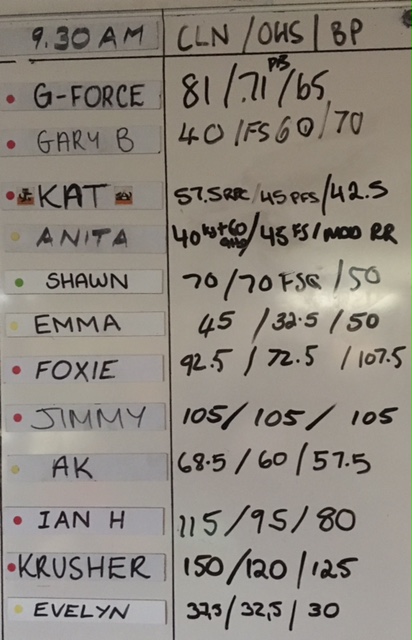 9.30 AM CLN / OHS / BP
G-FORCE 81 / 71 PB / 65
GARY B 40 / FS 60 / 70
KAT 57.5 / 45 PFS / 42.5
ANITA 40 / 45 FS / MOD RR
SHAWN 70 / 70 FSQ / 50
EMMA 45 / 32.5 / 50
FOXIE 92.5 / 72.5 / 107.5
JIMMY 105 / 105 / 105
AK 68.5 / 60 / 57.5
IAN H 115 / 95 / 80
KRUSHER 150 / 120 / 125
EVELYN 32,5 / 32,5 / 30